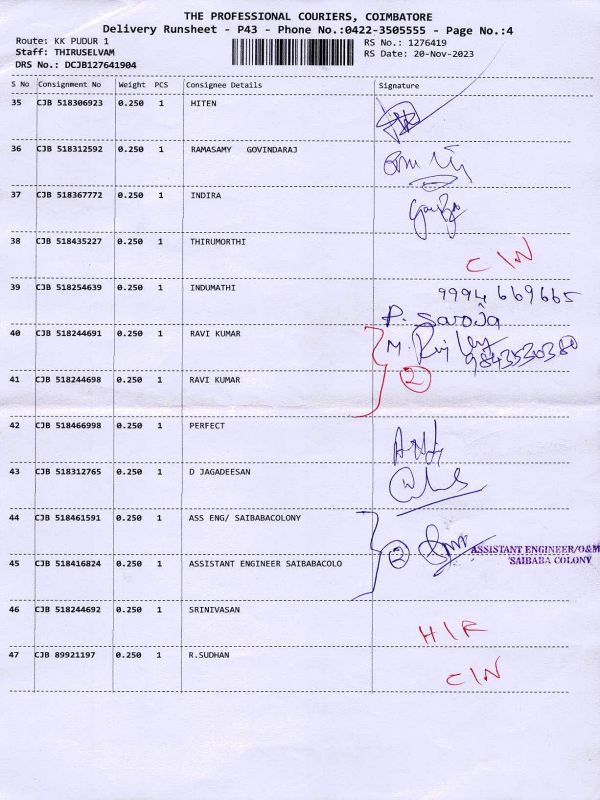 THE PROFESSIONAL COURIERS, COIMBATORE
Delivery Runsheet - P43 - Phone No.:0422-3505555 - Page No.:4
Route: KK PUDUR 1 RS No.: 1276419
Staff: THIRUSELVAM RS Date: 20-Nov-2023
DRS No.: DCJB127641904
S No Consignment No Weight PCS Consignee Details Signature
35 CJB 518306923 0.250 1 HITEN
36 CJB 518312592 0.250 1 RAMASAMY GOVINDARAJ
37 CJB 518367772 0.250 1 INDIRA
38 CJB 518435227 0.250 1 THIRUMORTHI CIN
39 CJB 518254639 0.250 1 INDUMATHI 9994669665
P. Saroja
40 CJB 518244691 0.250 1 RAVI KUMAR M. 9843530380
41 CJB 518244698 0.250 1 RAVI KUMAR 2
42 CJB 518466998 0.250 1 PERFECT
43 CJB 518312765 0.250 1 D JAGADEESAN
44 CJB 518461591 0.250 1 ASS ENG/ SAIBABACOLONY
2 ASSISTANT ENGINEER/O&M
45 CJB 518416824 0.250 1 ASSISTANT ENGINEER SAIBABACOLO SAIBABA COLONY
46 CJB 518244692 0.250 1 SRINIVASAN HIR
47 CJB 89921197 0.250 1 R.SUDHAN CIN